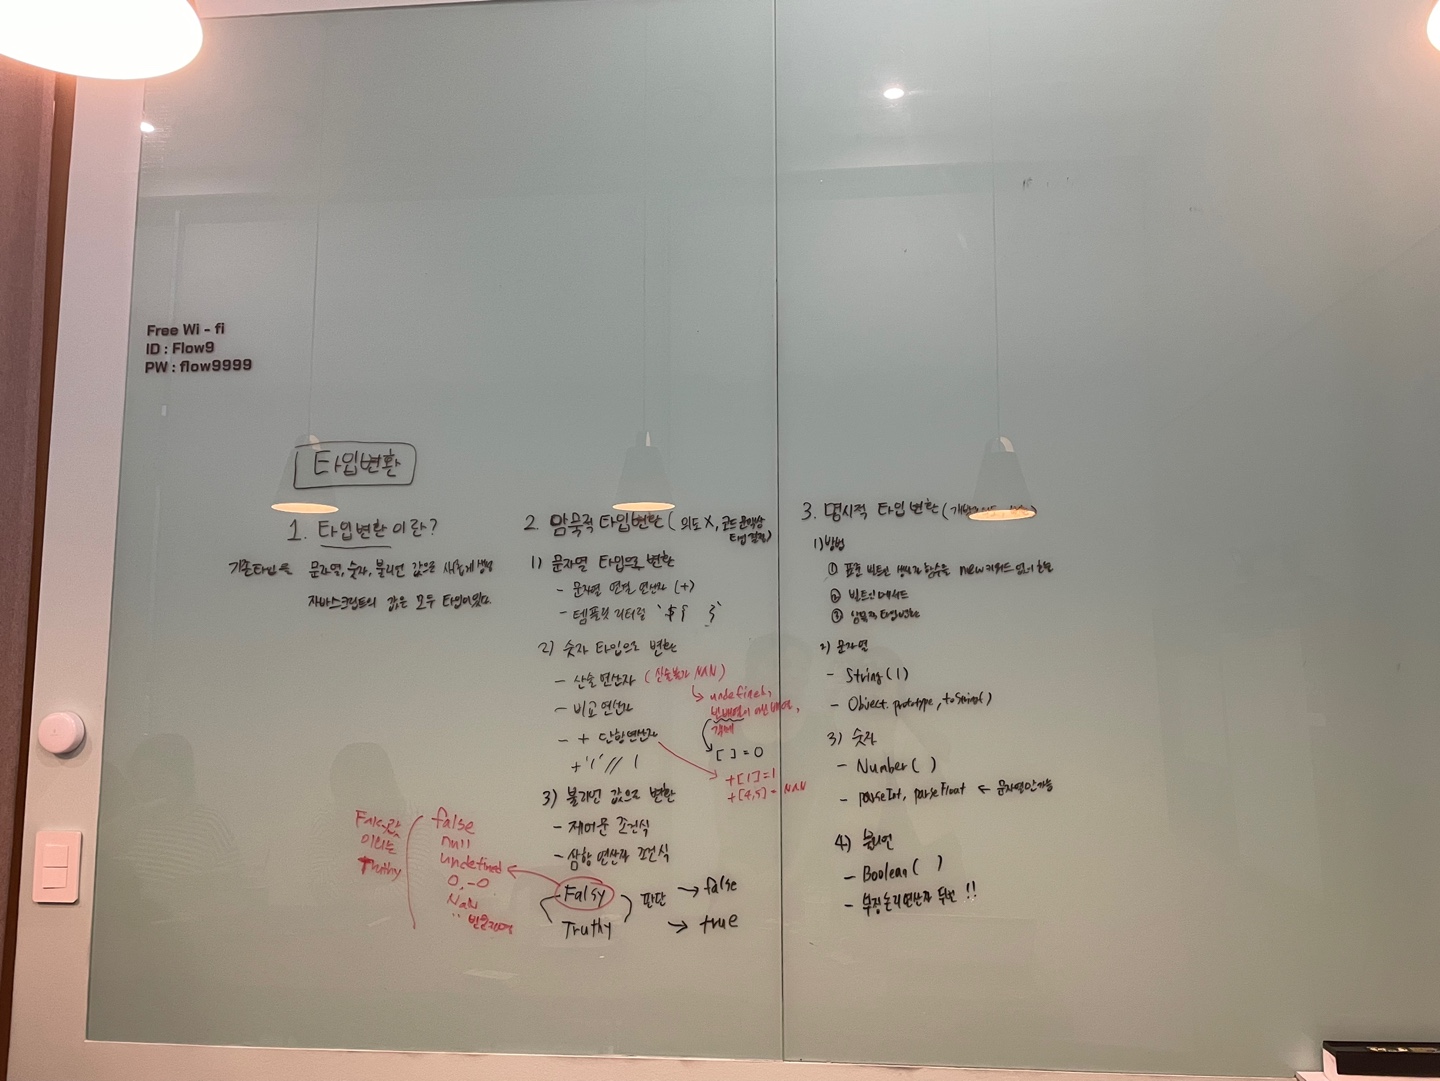 Free Wi - fi
ID : Flow9
PW : flow9999
타입변환
1. 타입변환이란?
기존타입을 문자열, 숫자, 불리언 값으로 새롭게 생성
자바스크립트의 값은 모두 타입이있다.
2. 암묵적 타입변환 (의도 X, 코드 문맥상
타입 결정)
1) 문자열 타입으로 변환
- 문자열 연결 연산자 (+)
- 템플릿 리터럴 `${ }`
2) 숫자 타입으로 변환
- 산술 연산자 (산술불가 NAN)
↳ undefined,
빈배열이 아닌 배열,
객체
[ ] = 0
- 비교 연산자
- + 단항연산자
+ '1' // 1
+[1] = 1
+[4,5] = NAN
3) 불리언 값으로 변환
- 제어문 조건식
- 삼항 연산자 조건식
Falsy
Truthy
판단
→ false
→ true
false
null
undefined
0, -0
NaN
'' 빈문자열
Falsy값
이외는
Truthy
3. 명시적 타입변환 (
1) 방법
① 표준 빌트인 생성자 함수를 new 키워드 없이 호출
② 빌트인메서드
③ 암묵적 타입변환
2) 문자열
- String(1)
- Object.prototype.toString()
3) 숫자
- Number( )
- parseInt, parseFloat ← 문자열만 가능
4) 불리언
- Boolean( )
- 부정논리연산자 두번 !!